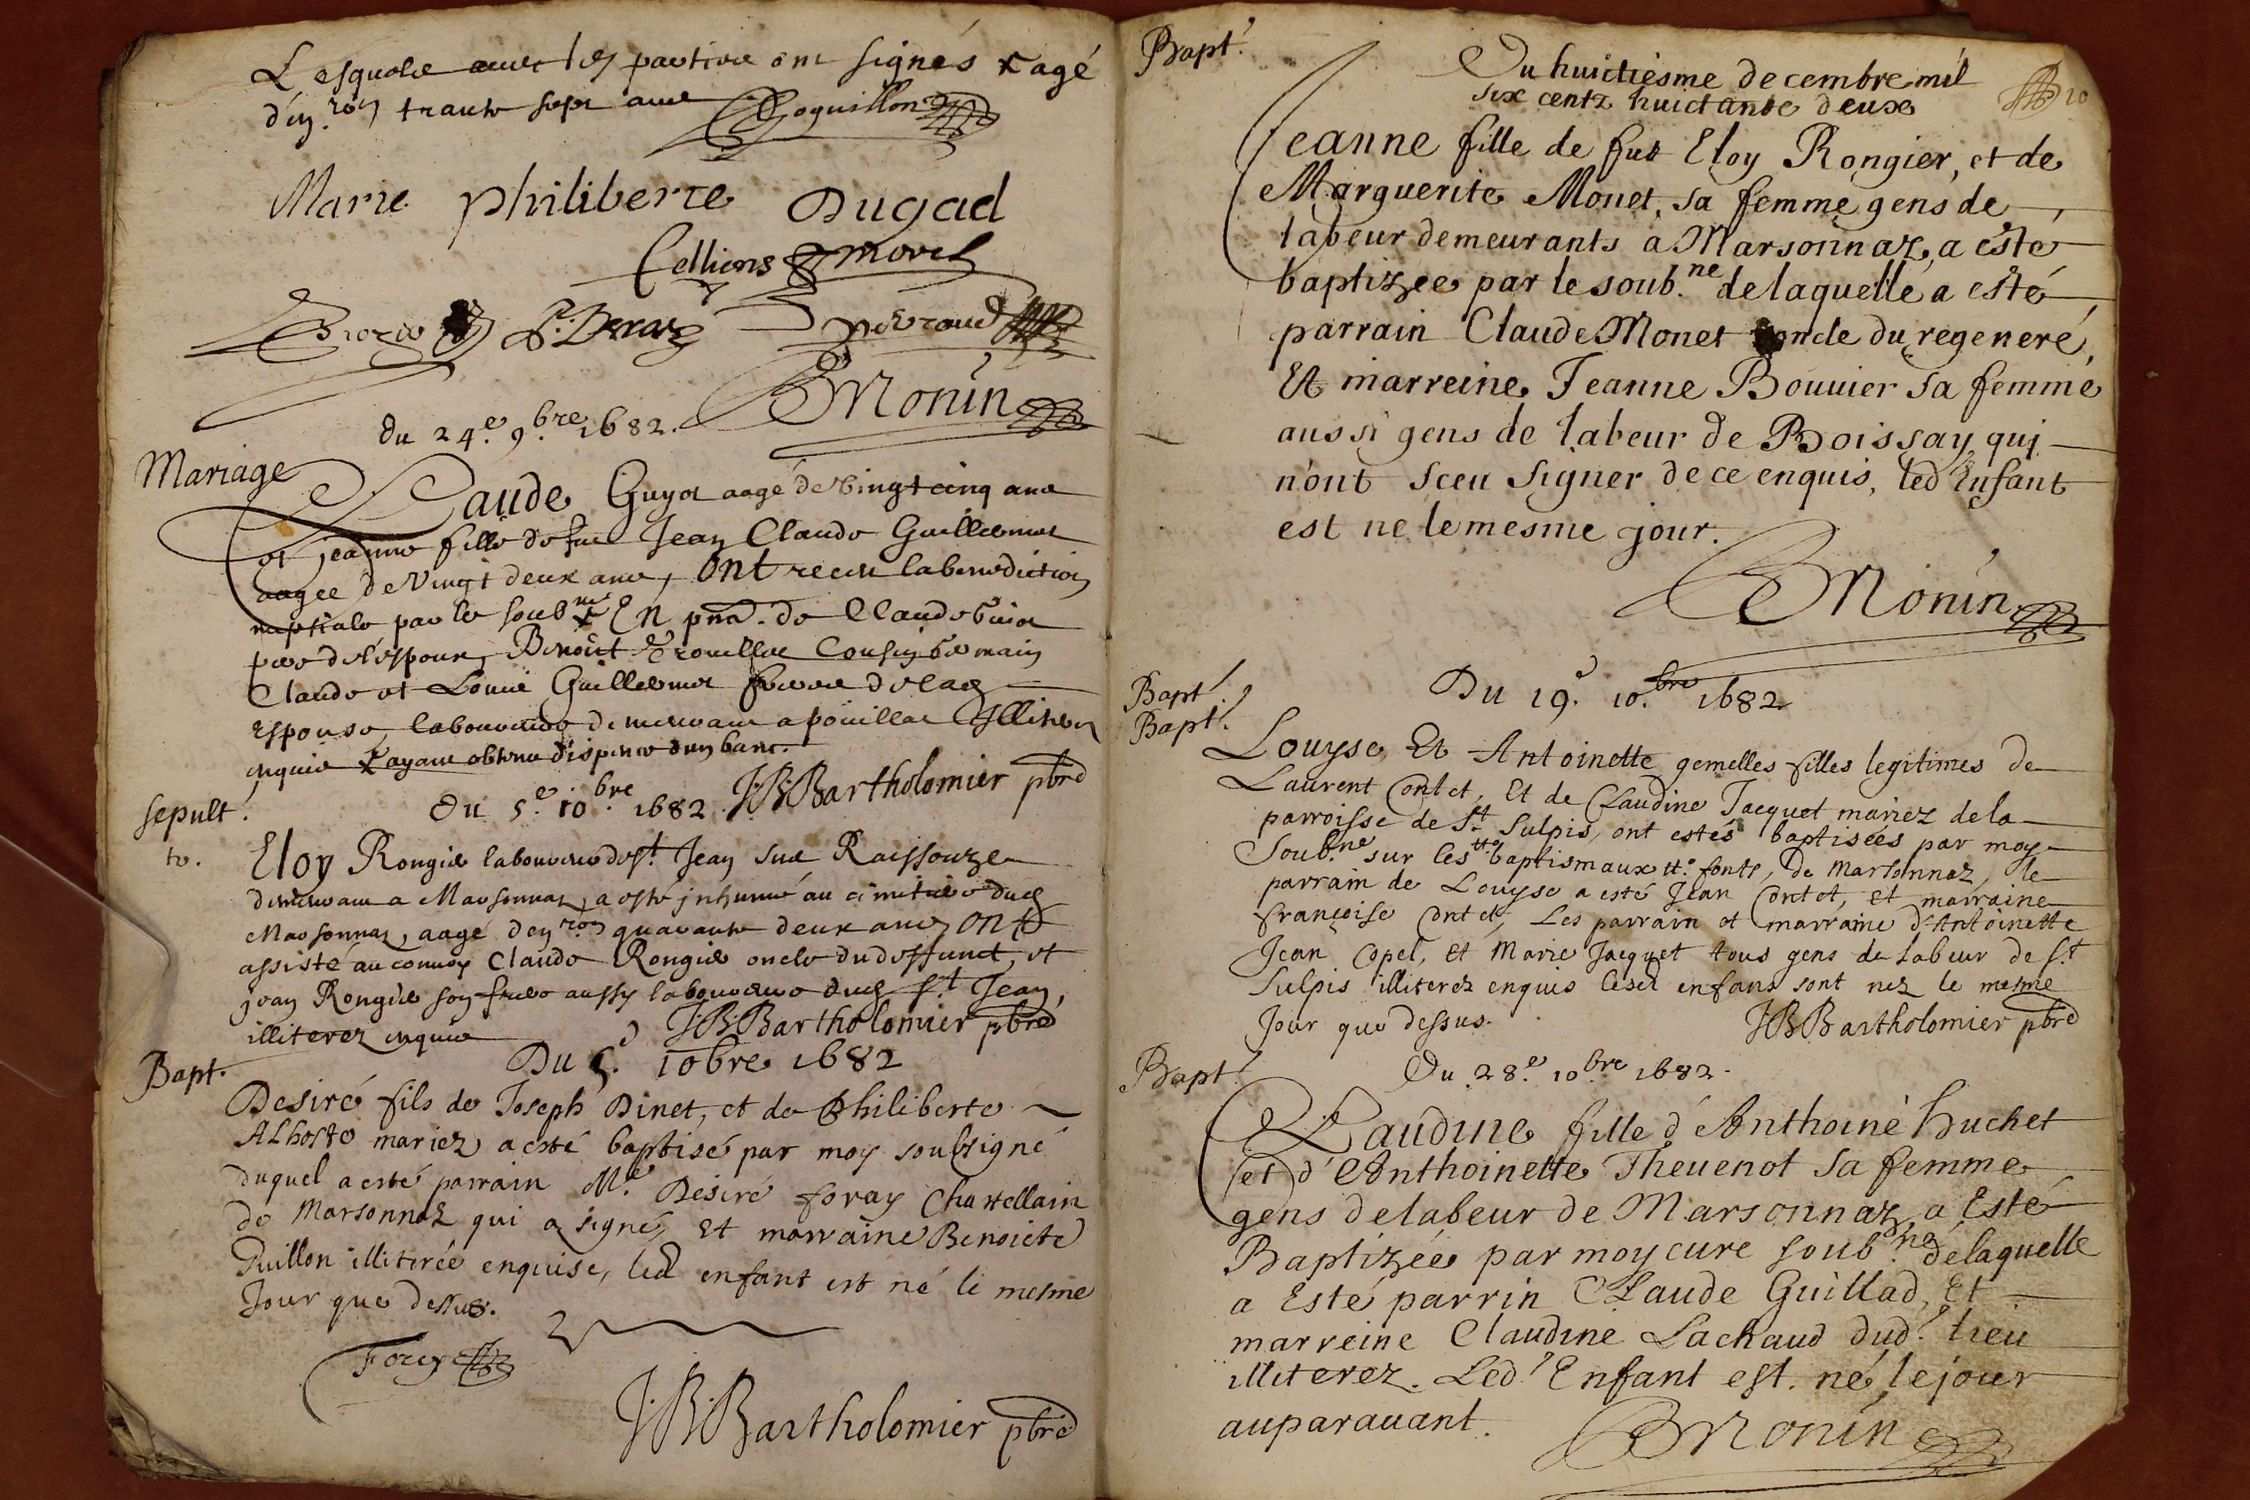 Lesquels avec les parties ont signés & agé
d'environ trante sept ans Goquillon
Marie philiberte Dugad
Cellions morel
P. Deray
Monin
du 24.e 9.bre 1682.
Mariage
Claude Guyot aagé de vingt cinq ans
et jeanne fille de fut Jean Claude Guillermot
aagee de vingt deux ans, ont receu la benediction
nuptiale par le soub.ne En pnce. de Claude Guiot
pere de l'espoux, Benoict cousin germain
Claude et Louis Guillermot freres de lad
Espouse, laboureurs demeurans a pouillat Illiterez
enquis & ayans obtenu dispence d'un banc.
JB Bartholomier pbre
sepult.re
Du 5.e 10.bre 1682
Eloy Rongier laboureur de St. Jean sur Raissouze
demeurant a Marsonnaz, a esté inhumé au cimitiere dud
Marsonnaz, aagé d'environ quarante deux ans, ont
assisté au convoy Claude Rongier oncle du deffunct, et
jean Rongier son frere aussy laboureurs dud St. Jean,
illiterez enquis JB Bartholomier pbre
Bapt.
Du 5.e 10bre 1682
Desiré fils de Joseph Dinet, et de Philiberte
Alhoste mariez a esté baptisé par moy soubsigné
duquel a esté parrain M.e Desiré foray Chastellain
de Marsonnaz qui a signé, Et marraine Benoicte
Puillon illiterée enquise, led enfant est né le mesme
Jour que dessus.
Forey
J.B. Bartholomier pbre
Bapt.
Du huictiesme decembre mil
six centz huictante deux
10
Jeanne fille de fut Eloy Rongier, et de
Marguerite Monet, sa femme gens de
labeur demeurants a Marsonnaz, a esté
baptizee par le soub.ne de laquelle a esté
parrain Claude Monet oncle du regeneré,
Et marreine Jeanne Bouvier sa femme
aussi gens de labeur de Boissay, qui
n'ont sceu signer de ce enquis, led Enfant
est ne le mesme jour.
Monin
Bapt.
Bapt.
Du 19.e 10.bre 1682
Louyse Et Antoinette gemelles filles legitimes de
Laurent Contet, Et de Claudine Jacquet mariez de la
parroisse de St. Sulpis, ont estés baptisées par moy
Soub.ne sur les baptismaux fonts, de Marsonnaz, le
parrain de Louyse a esté Jean Contet, Et marraine
françoise Contet, Les parrain et marraine d'Antoinette
Jean Copel, Et Marie Jacquet tous gens de Labeur de St.
Sulpis illiterez enquis lesd enfans sont nez le mesme
Jour que dessus. JB Bartholomier pbre
Bapt.
Du 28.e 10.bre 1682.
Claudine fille d'Anthoine huchet
et d'Anthoinette Thevenot sa femme
gens de labeur de Marsonnaz, a Esté
Baptizée par moy curé soub.né de laquelle
a Esté parrin Claude Guillad, Et
marreine Claudine Lachaud dud.t lieu
illiterez. Led.t Enfant est. né le jour
auparauant.
Monin